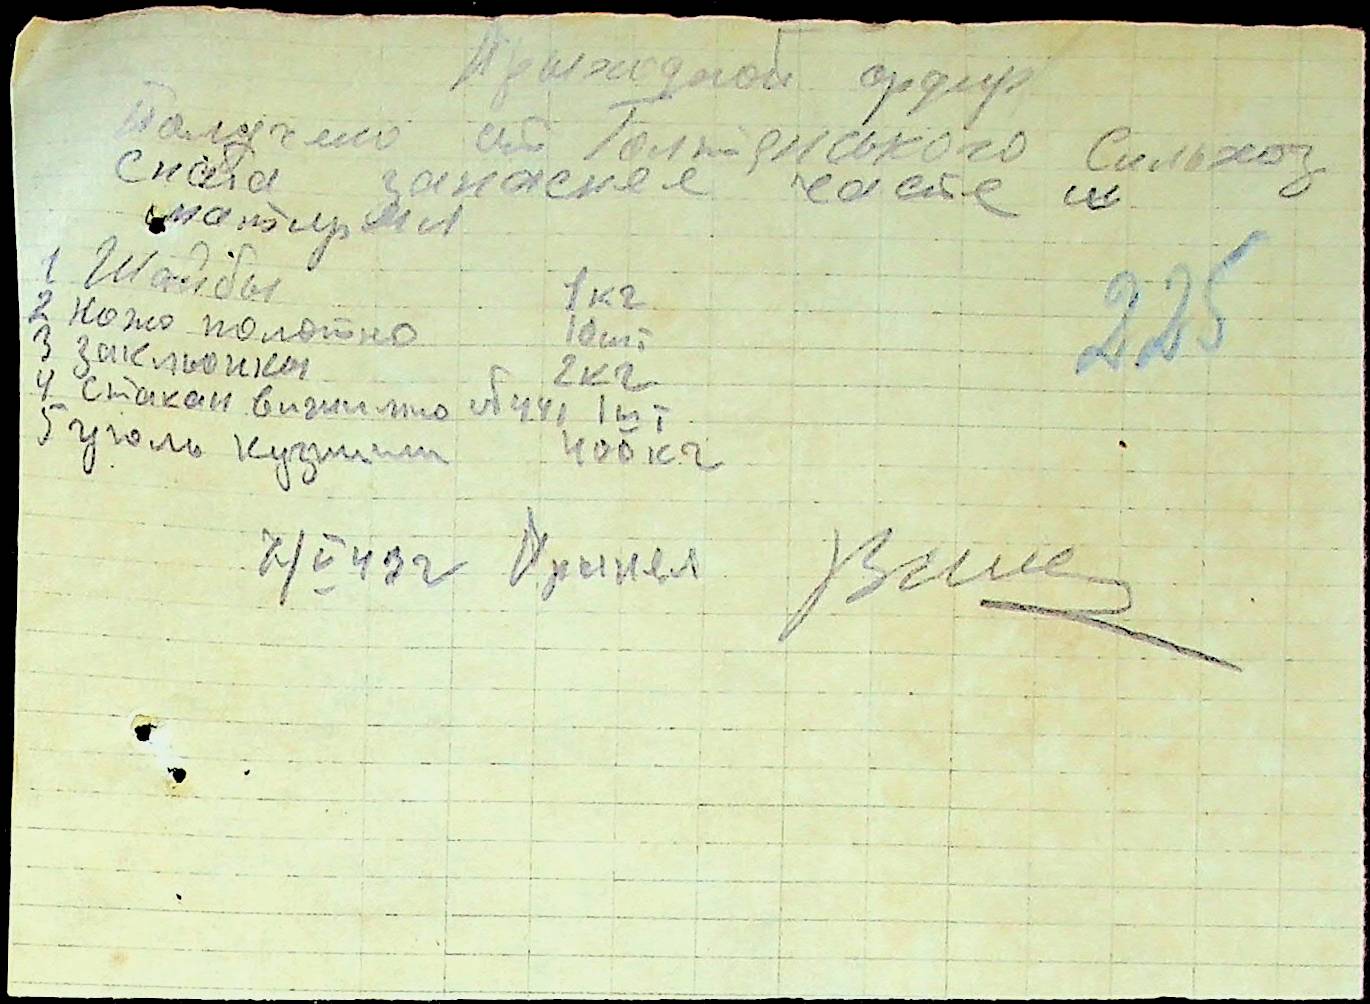 Прыходной ордир
Палучено от Голтянського Сильхоз
снаба запасные части и
матирял
1 Шайбы 1кг
225
2 Ножо полотно 10шт
3 закльопкы 2кг
4 стакан 1шт
5 уголь кузним 400кг
7/VI 43г Прынял